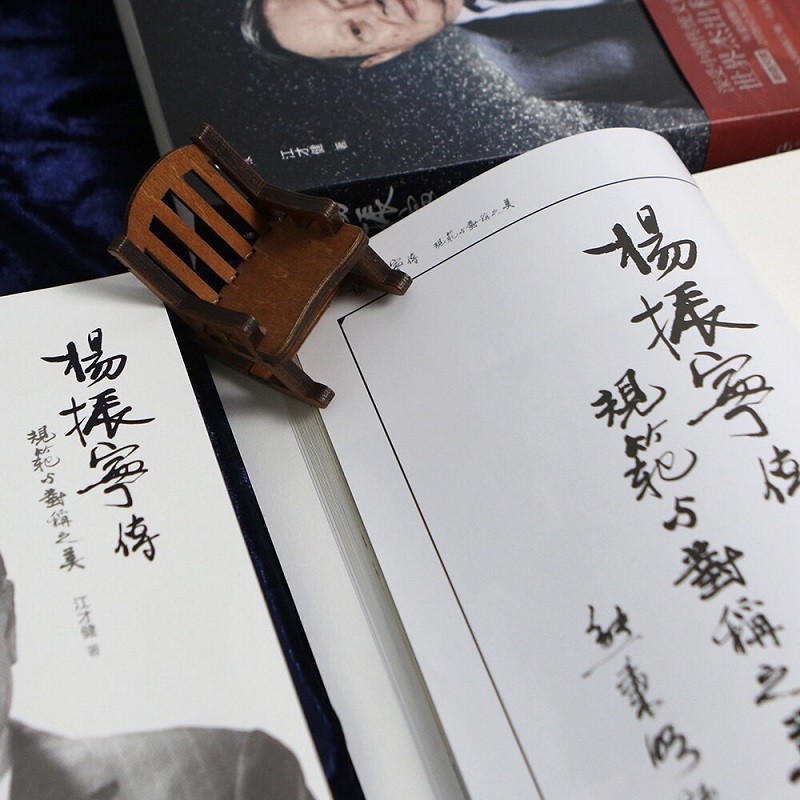 江才健 著
規範与對稱之美
楊振寧傳
規範与對稱之美
熊秉明
楊振寧傳
規範与對稱之美
江才健 著